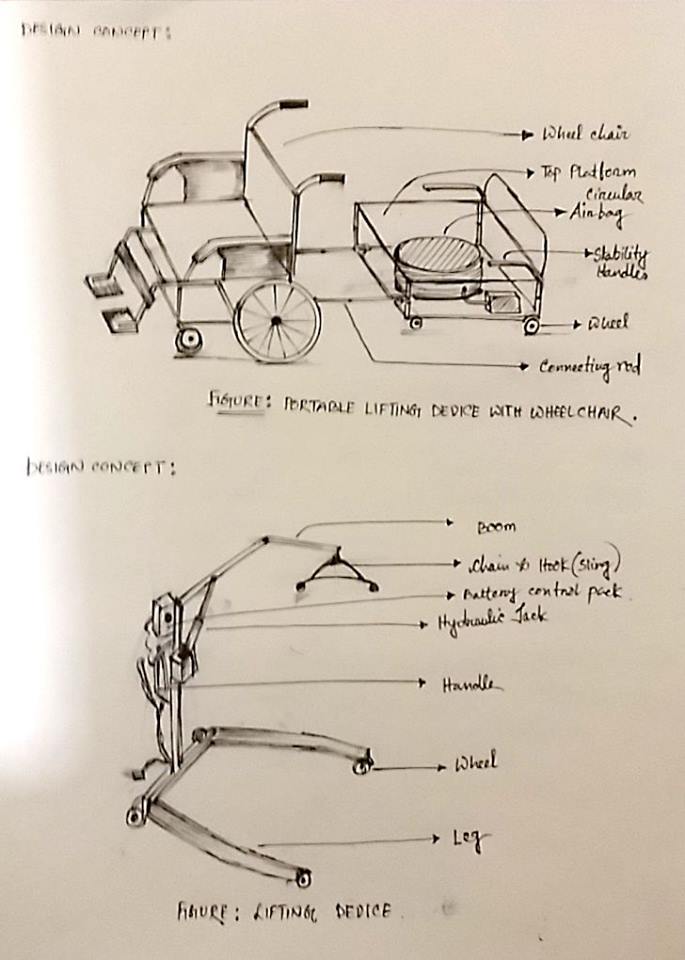 DESIGN CONCEPT:
Wheel chair
Top Platform
Circular
Airbag
Stability
Handles
Wheel
Connecting rod
FIGURE: PORTABLE LIFTING DEDICE WITH WHEELCHAIR.
DESIGN CONCEPT:
Boom
Chain & Hook (sling)
Battery control pack.
Hydraulic Jack
Handle
Wheel
Leg
FIGURE: LIFTING DEDICE.